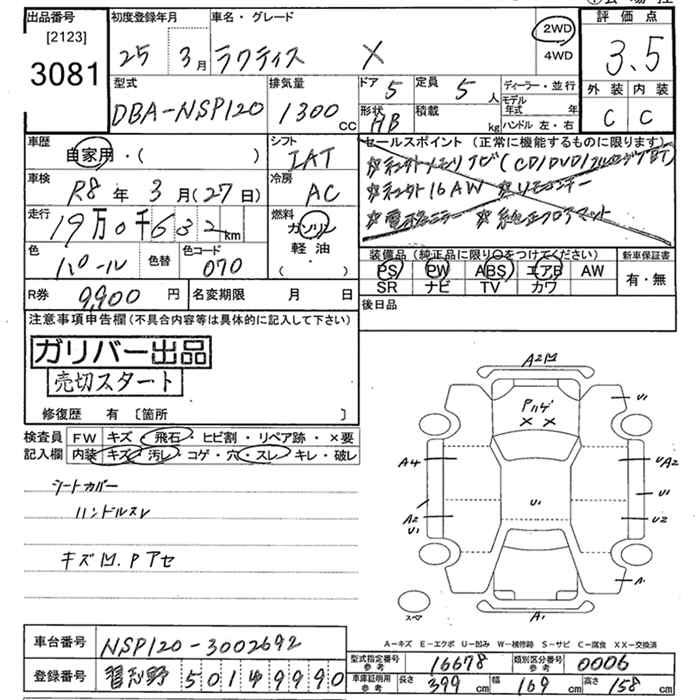 出品番号
[2123]
3081
初度登録年月
25 3月
車名・グレード
ラクティス X
2WD
4WD
評価点
3.5
外装 内装
C C
型式
DBA-NSP120
排気量
1300 CC
ドア 5
形状 HB
定員 5 人
積載 kg
ディーラー・並行
モデル年式 年
ハンドル 左・右
車歴
自家用・( )
シフト
IAT
セールスポイント (正常に機能するものに限ります)
車検
R8 年 3 月 (27日)
冷房
AC
走行
19万0千632km
燃料
ガソリン
軽油
( ・ )
色
パール
色替
色コード
070
装備品 (純正品に限り○をつけてください)
PS PW ABS エアB AW
SR ナビ TV カワ
新車保証書
有・無
R券 9,900 円
名変期限 月 日
後日品
注意事項申告欄(不具合内容等は具体的に記入して下さい)
ガリバー出品
売切スタート
修復歴 有 〔箇所 〕
検査員
記入欄
FW キズ・飛石・ヒビ割・リペア跡・×要
内装 キズ・汚レ・コゲ・穴・スレ・キレ・破レ
シートカバー
ハンドルスレ
キズ凹.Pアセ
A2凹
Pハゲ
× ×
U1
A4
UA2
U1
U1
A2
U1
U2
A1
スペア
A1
A-キズ E-エクボ U-凹み W-補修跡 S-サビ C-腐食 XX-交換済
車台番号 NSP120-3002692
登録番号
型式指定番号 参考 16678
類別区分番号 参考 0006
車庫証明用 参考 長さ 399 cm 幅 169 cm 高さ 158 cm